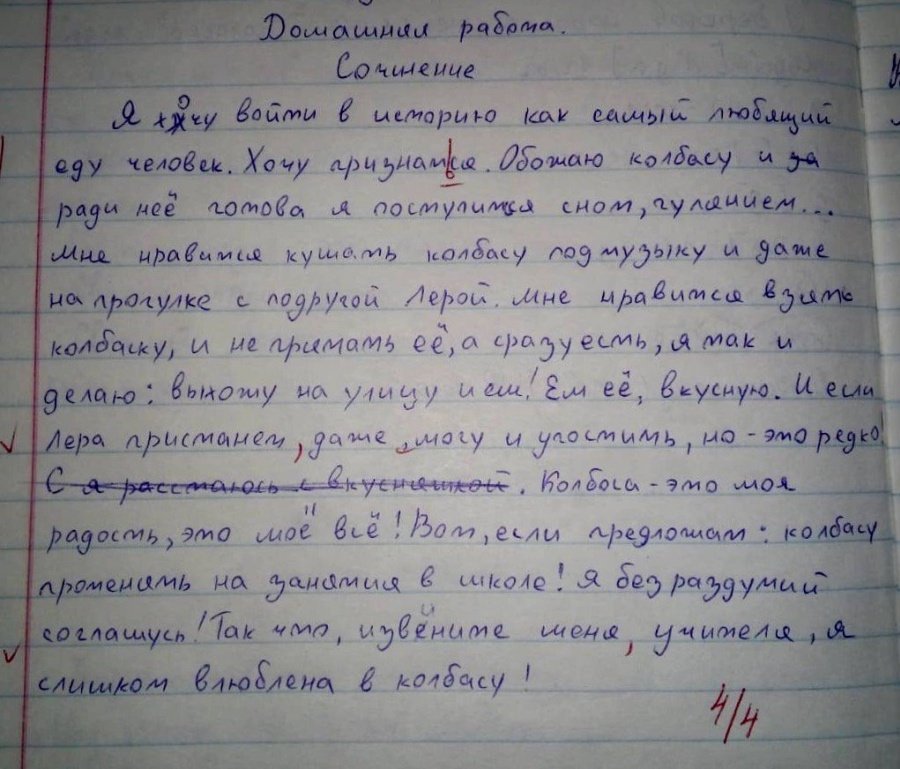 Домашняя работа.
Сочинение
Я хочу войти в историю как самый любящий
еду человек. Хочу признаться. Обожаю колбасу и за
ради неё готова я поступится сном, гулянием...
Мне нравится кушать колбасу под музыку и даже
на прогулке с подругой Лерой. Мне нравится взять
колбаску, и не прятать её, а сразу есть, я так и
делаю: выхожу на улицу и ем! Ем её, вкусную. И если
Лера пристанет, даже, могу и угостить, но - это редко
С я расстаюсь с вкусняшкой. Колбаса - это моя
радость, это моё всё! Вот, если предложат: колбасу
променять на занятия в школе! Я без раздумий
соглашусь! Так что, извените меня, учителя, я
слишком влюблена в колбасу!
4/4